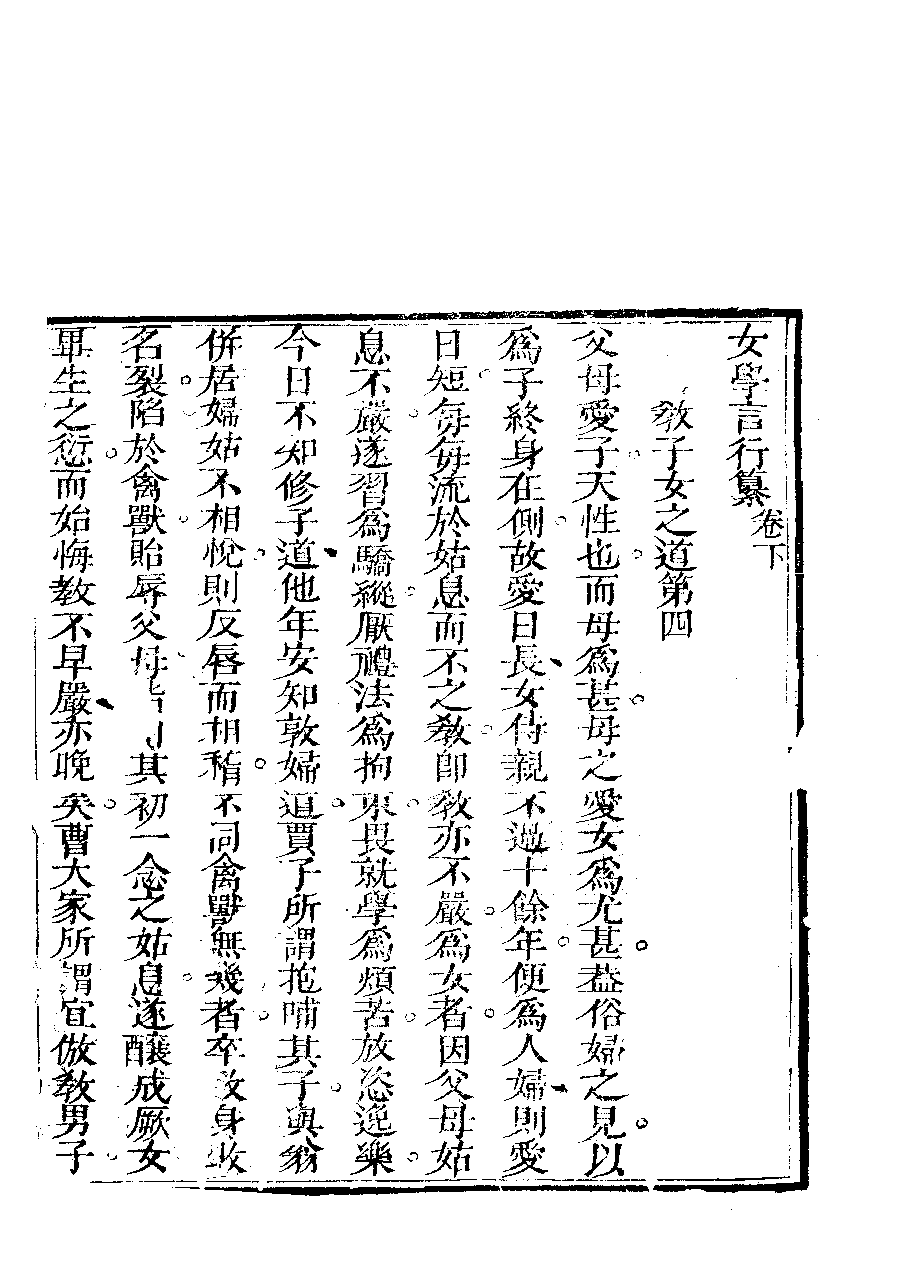 女學言行纂卷下
教子女之道第四
父母愛子天性也而母爲甚母之愛女爲尤甚葢俗婦之見以
爲子終身在側故愛日長女侍親不過十餘年便爲人婦則愛
日短每每流於姑息而不之教卽教亦不嚴爲女者因父母姑
息不嚴遂習爲驕縱厭禮法爲拘束畏就學爲煩苦放恣逸樂
今日不知修子道他年安知敦婦道賈子所謂抱哺其子與翁
併居婦姑不相悅則反唇而相稽不同禽獸無幾者卒致身敗
名裂陷於禽獸貽辱父母 其初一念之姑息遂釀成厥女
畢生之愆而始悔教不早嚴亦晚矣曹大家所謂宜倣教男子